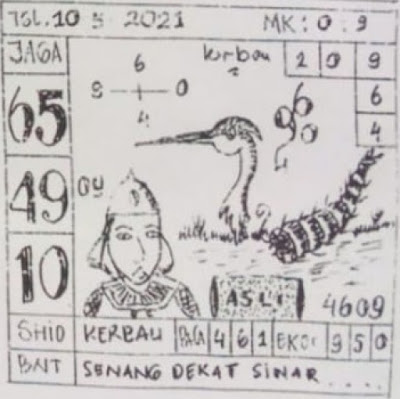 TGL.10 5 2021 MK: 0 : 9
JAGA
65
49
10
6
8 0
4
kerbau
2 0 9
6
4
ASLI
4609
SHIO KERBAU 4 6 1 EKOR 9 5 0
BNT SENANG DEKAT SINAR ....